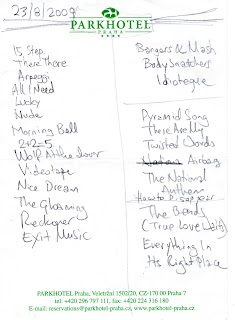 23/8/2009
PARKHOTEL
PRAHA
15 Step
There There
Arpeggi
All I Need
Lucky
Nude
Morning Bell
2+2=5
Wolf At the door
Videotape
Nice Dream
The Gloaming
Reckoner
Exit Music
Bangers & Mash
Body Snatchers
Idioteque
Pyramid Song
These Are My
Twisted Words
Airbag
The National
Anthem
How to Disappear
The Bends
(True Love Waits)
Everything In
Its Right Place
PARKHOTEL Praha, Veletržní 1502/20, CZ-170 00 Praha 7
tel: +420 296 797 111, fax: +420 224 316 180
E-mail: reservations@parkhotel-praha.cz, www.parkhotel-praha.cz